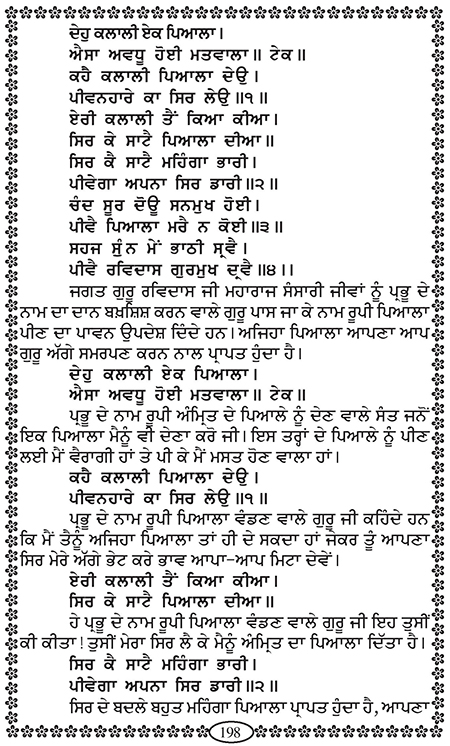 ਦੇਹੁ ਕਲਾਲੀ ਏਕ ਪਿਆਲਾ।
ਐਸਾ ਅਵਧੂ ਹੋਈ ਮਤਵਾਲਾ॥ ਟੇਕ॥
ਕਹੈ ਕਲਾਲੀ ਪਿਆਲਾ ਦੇਉ।
ਪੀਵਨਹਾਰੇ ਕਾ ਸਿਰ ਲੇਉ॥੧॥
ਏਰੀ ਕਲਾਲੀ ਤੈਂ ਕਿਆ ਕੀਆ।
ਸਿਰ ਕੇ ਸਾਟੈ ਪਿਆਲਾ ਦੀਆ॥
ਸਿਰ ਕੈ ਸਾਟੈ ਮਹਿੰਗਾ ਭਾਰੀ।
ਪੀਵੇਗਾ ਅਪਨਾ ਸਿਰ ਡਾਰੀ॥੨॥
ਚੰਦ ਸੂਰ ਦੋਊ ਸਨਮੁਖ ਹੋਈ।
ਪੀਵੈ ਪਿਆਲਾ ਮਰੈ ਨ ਕੋਈ॥੩॥
ਸਹਜ ਸੁੰਨ ਮੇਂ ਭਾਠੀ ਸ੍ਰਵੈ।
ਪੀਵੈ ਰਵਿਦਾਸ ਗੁਰਮੁਖ ਦ੍ਰਵੈ॥੪।।
ਜਗਤ ਗੁਰੂ ਰਵਿਦਾਸ ਜੀ ਮਹਾਰਾਜ ਸੰਸਾਰੀ ਜੀਵਾਂ ਨੂੰ ਪ੍ਰਭੂ ਦੇ
ਨਾਮ ਦਾ ਦਾਨ ਬਖ਼ਸ਼ਿਸ਼ ਕਰਨ ਵਾਲੇ ਗੁਰੂ ਪਾਸ ਜਾ ਕੇ ਨਾਮ ਰੂਪੀ ਪਿਆਲਾ
ਪੀਣ ਦਾ ਪਾਵਨ ਉਪਦੇਸ਼ ਦਿੰਦੇ ਹਨ। ਅਜਿਹਾ ਪਿਆਲਾ ਆਪਣਾ ਆਪ
ਗੁਰੂ ਅੱਗੇ ਸਮਰਪਣ ਕਰਨ ਨਾਲ ਪ੍ਰਾਪਤ ਹੁੰਦਾ ਹੈ।
ਦੇਹੁ ਕਲਾਲੀ ਏਕ ਪਿਆਲਾ।
ਐਸਾ ਅਵਧੂ ਹੋਈ ਮਤਵਾਲਾ॥ ਟੇਕ॥
ਪ੍ਰਭੂ ਦੇ ਨਾਮ ਰੂਪੀ ਅੰਮ੍ਰਿਤ ਦੇ ਪਿਆਲੇ ਨੂੰ ਦੇਣ ਵਾਲੇ ਸੰਤ ਜਨੋਂ
ਇਕ ਪਿਆਲਾ ਮੈਨੂੰ ਵੀ ਦੇਣਾ ਕਰੋ ਜੀ। ਇਸ ਤਰ੍ਹਾਂ ਦੇ ਪਿਆਲੇ ਨੂੰ ਪੀਣ
ਲਈ ਮੈਂ ਵੈਰਾਗੀ ਹਾਂ ਤੇ ਪੀ ਕੇ ਮੈਂ ਮਸਤ ਹੋਣ ਵਾਲਾ ਹਾਂ।
ਕਹੈ ਕਲਾਲੀ ਪਿਆਲਾ ਦੇਉ।
ਪੀਵਨਹਾਰੇ ਕਾ ਸਿਰ ਲੇਉ॥੧॥
ਪ੍ਰਭੂ ਦੇ ਨਾਮ ਰੂਪੀ ਪਿਆਲਾ ਵੰਡਣ ਵਾਲੇ ਗੁਰੂ ਜੀ ਕਹਿੰਦੇ ਹਨ
ਕਿ ਮੈਂ ਤੈਨੂੰ ਅਜਿਹਾ ਪਿਆਲਾ ਤਾਂ ਹੀ ਦੇ ਸਕਦਾ ਹਾਂ ਜੇਕਰ ਤੂੰ ਆਪਣਾ
ਸਿਰ ਮੇਰੇ ਅੱਗੇ ਭੇਟ ਕਰੇ ਭਾਵ ਆਪਾ-ਆਪ ਮਿਟਾ ਦੇਵੇਂ।
ਏਰੀ ਕਲਾਲੀ ਤੈਂ ਕਿਆ ਕੀਆ।
ਸਿਰ ਕੇ ਸਾਟੈ ਪਿਆਲਾ ਦੀਆ॥
ਹੇ ਪ੍ਰਭੂ ਦੇ ਨਾਮ ਰੂਪੀ ਪਿਆਲਾ ਵੰਡਣ ਵਾਲੇ ਗੁਰੂ ਜੀ ਇਹ ਤੁਸੀਂ
ਕੀ ਕੀਤਾ! ਤੁਸੀਂ ਮੇਰਾ ਸਿਰ ਲੈ ਕੇ ਮੈਨੂੰ ਅੰਮ੍ਰਿਤ ਦਾ ਪਿਆਲਾ ਦਿੱਤਾ ਹੈ।
ਸਿਰ ਕੈ ਸਾਟੈ ਮਹਿੰਗਾ ਭਾਰੀ।
ਪੀਵੇਗਾ ਅਪਨਾ ਸਿਰ ਡਾਰੀ॥੨॥
ਸਿਰ ਦੇ ਬਦਲੇ ਬਹੁਤ ਮਹਿੰਗਾ ਪਿਆਲਾ ਪ੍ਰਾਪਤ ਹੁੰਦਾ ਹੈ, ਆਪਣਾ
198